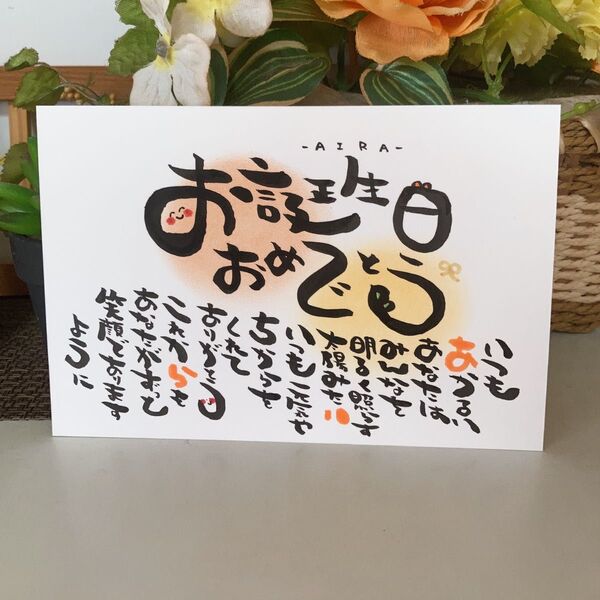 -AIRA-
お誕生日
おめでとう
いつも
あかるい
あなたは
みんなを
明るく照らす
太陽みたい
いつも元気や
ちからを
くれて
ありがとう
これからも
あなたがずっと
笑顔であります
ように